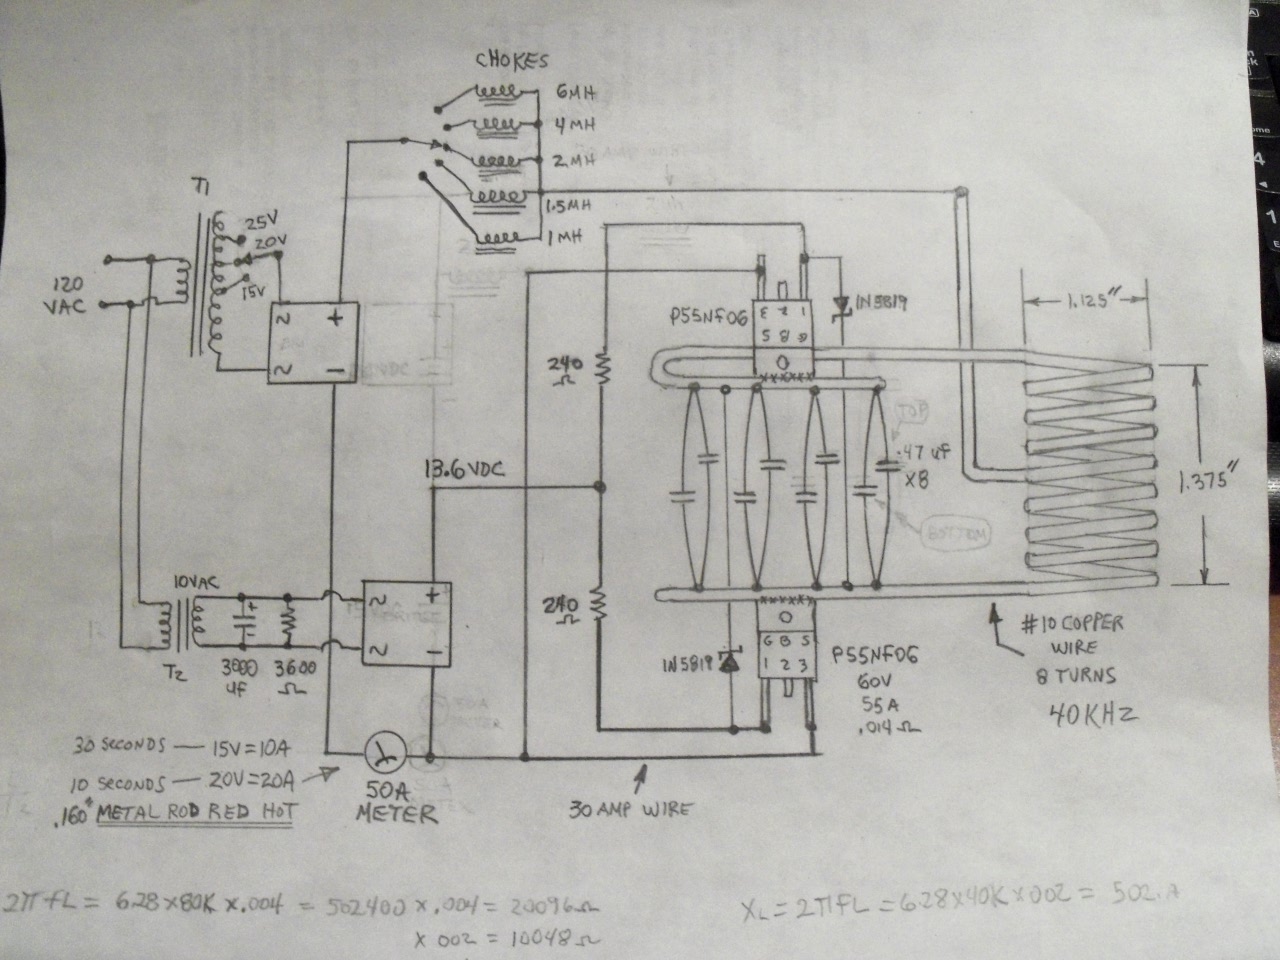 CHOKES
6MH
4MH
2MH
1.5MH
1MH
T1
25V
20V
15V
120
VAC
~ +
~ -
P55NF06
3 2 1
S B G
1N5819
1.125"
240
Ω
.47 uf
X8
TOP
BOTTOM
1.375"
13.6VDC
10VAC
~ +
~ -
T2
3000
uf
3600
Ω
240
Ω
1N5819
G B S
1 2 3
P55NF06
60V
55A
.014Ω
#10 COPPER
WIRE
8 TURNS
40KHZ
30 SECONDS — 15V=10A
10 SECONDS — 20V=20A
.160" METAL ROD RED HOT
50A
METER
30 AMP WIRE
2πfL = 6.28×80K×.004 = 502400×.004 = 20096Ω
× 002 = 10048Ω
XL = 2πFL = 6.28×40K×002 = 502.